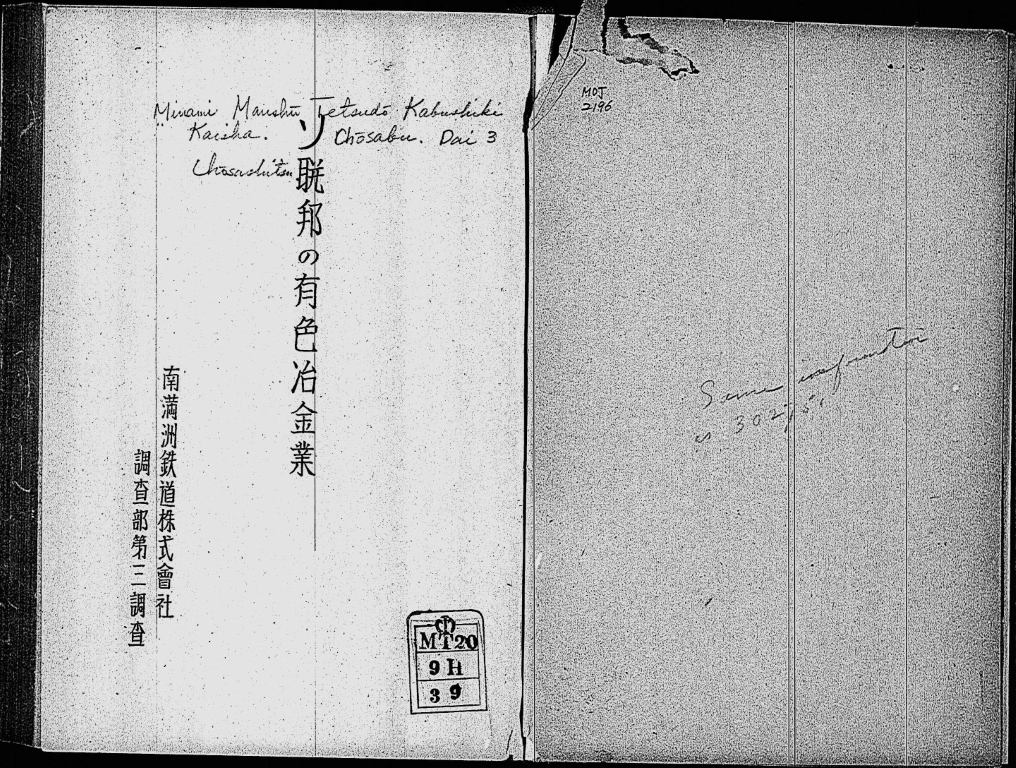 Minami Manshū Tetsudō Kabushiki
Kaisha. Chōsabu. Dai 3
Chōsashitsu
ソ聯邦の有色冶金業
南満洲鉄道株式會社
調査部第三調査
MT20
9 H
3 9
MOJ
2196
Same information
as 302,151